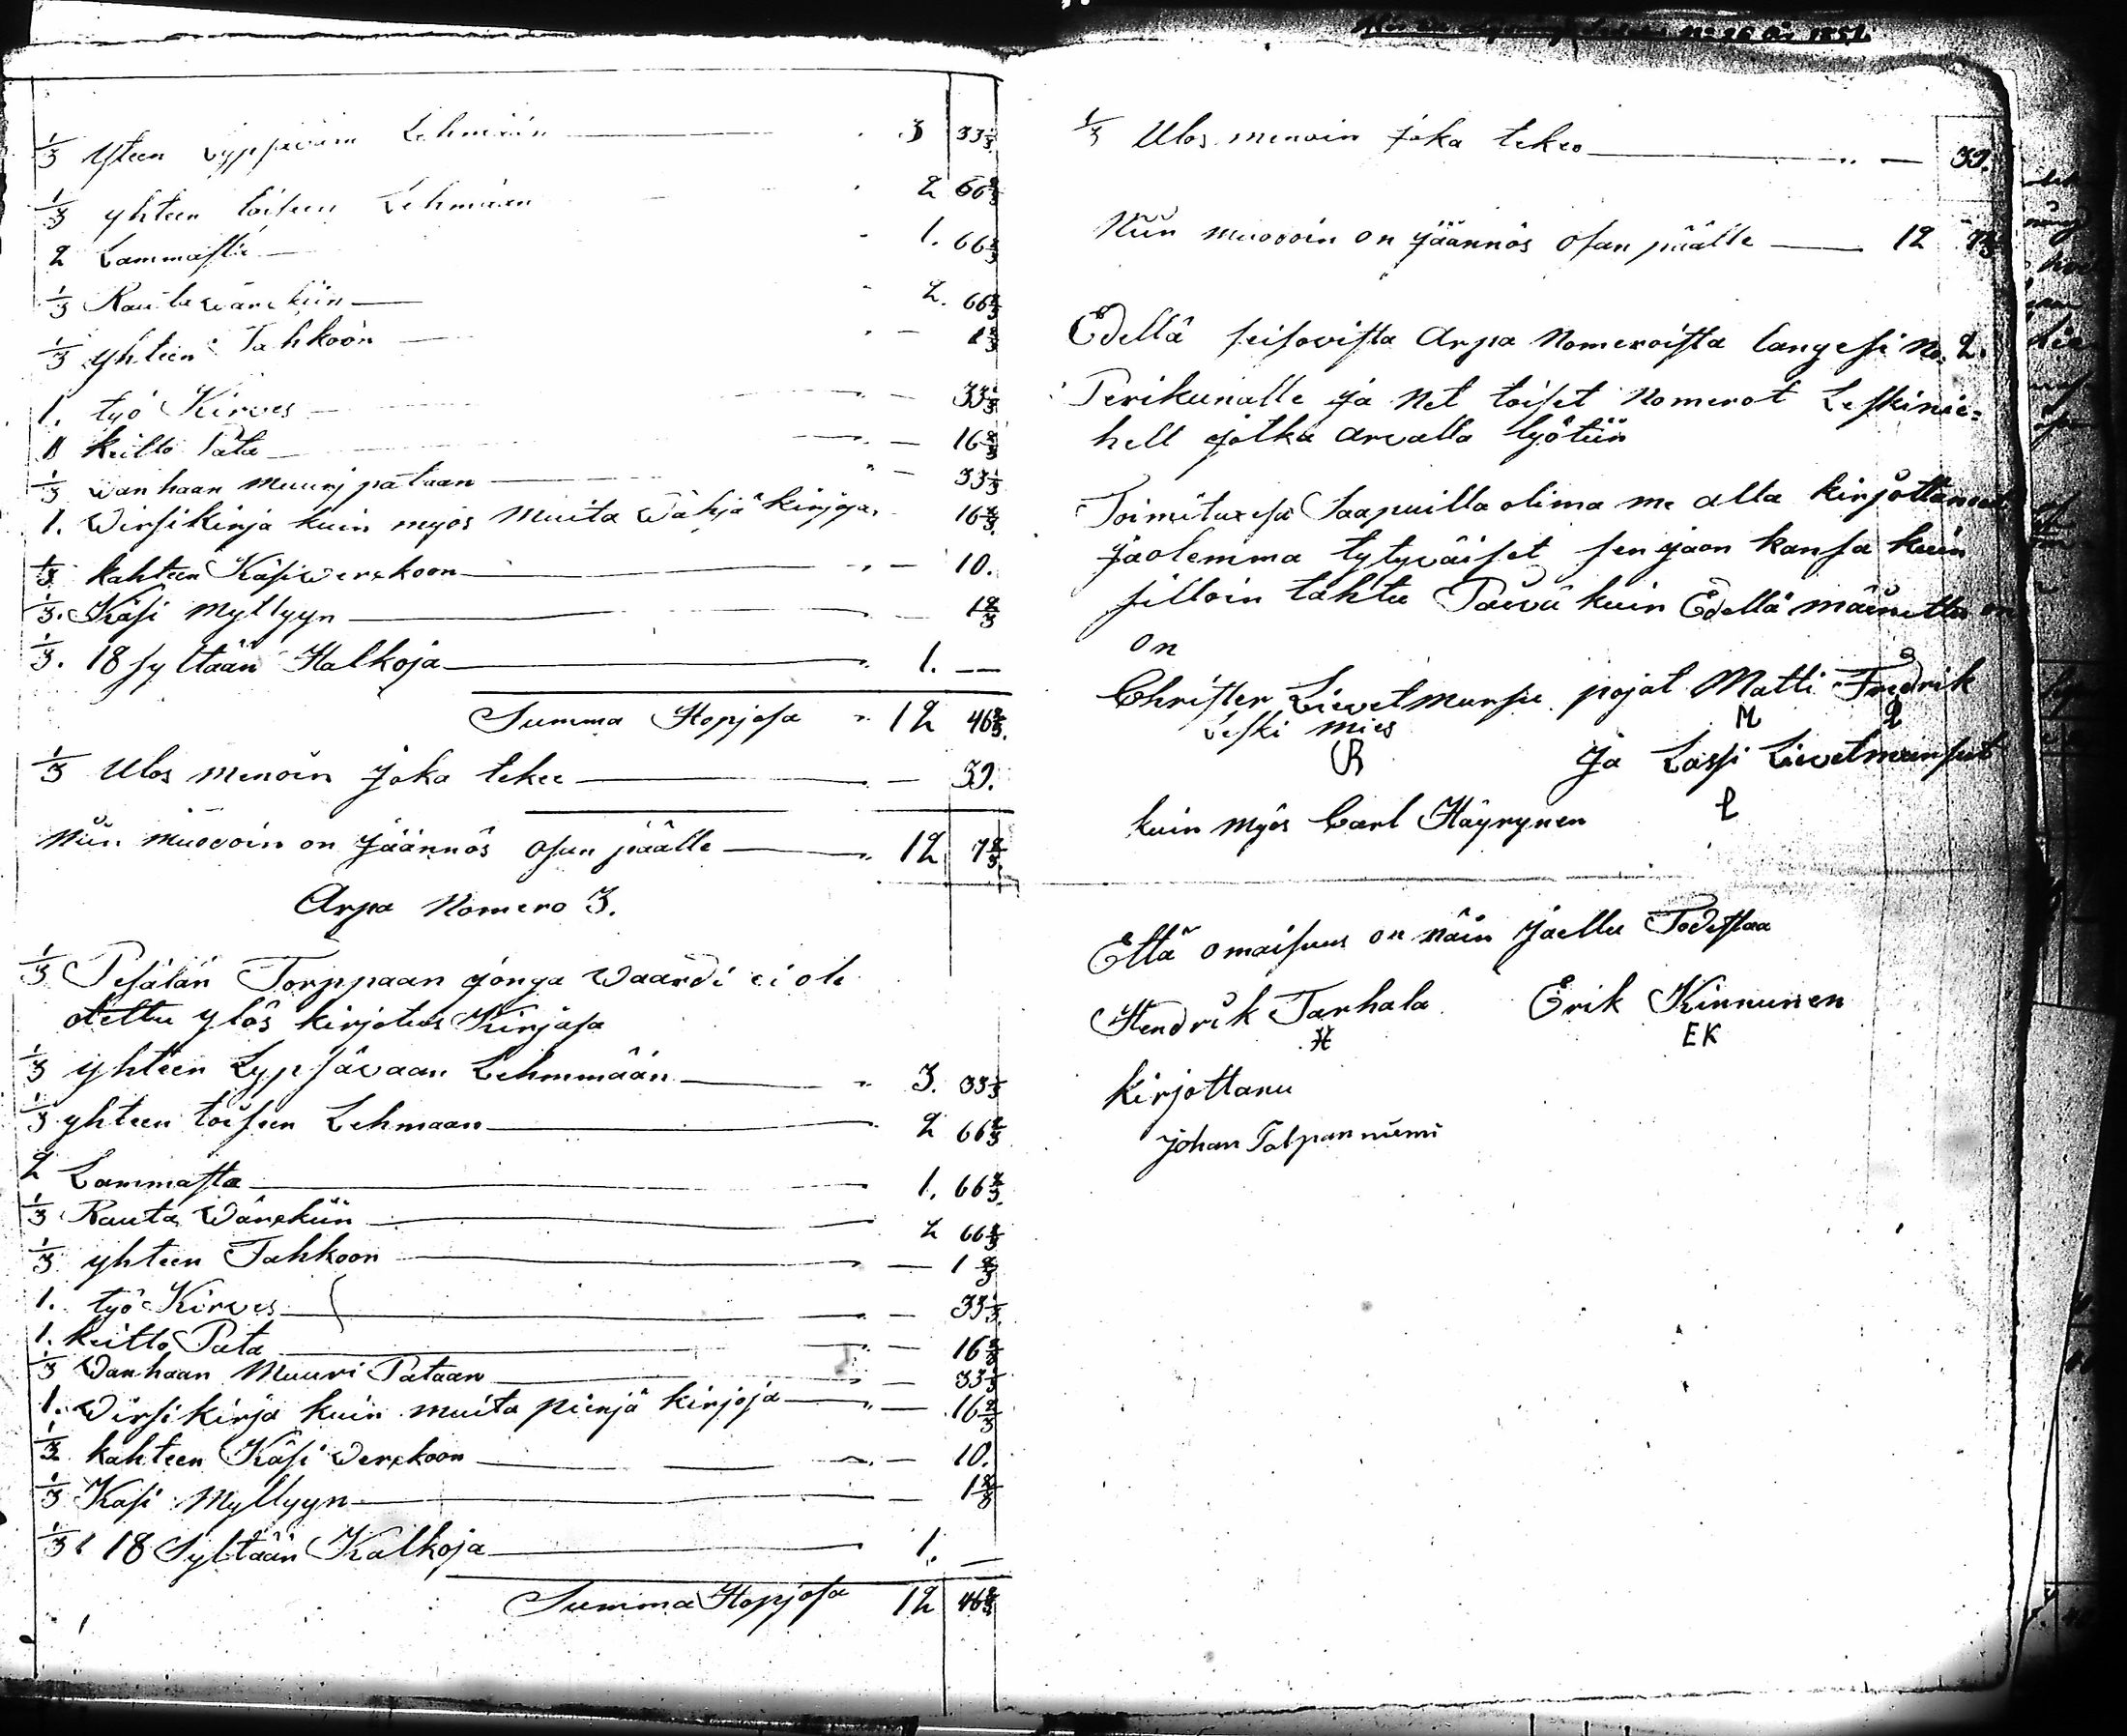 1/3 yhteen Lypsävään Lehmään 3 33 1/3
1/3 yhteen toiseen Lehmään 2 66 2/3
2 Lammasta 1. 66 2/3
1/3 Rauta wärckiin 2. 66 2/3
1/3 yhteen Tahkoon — 1 2/3
1. työ Kirves — 33 1/3
1 keitto Pata — 16 2/3
1/3 wanhaan muurj pataan — 33 1/3
1. Wirsikirja kuin myös muita wähjä kirjoja 16 2/3
1/3 kahteen Käsiwerckoon — 10.
1/3. Käsi Myllyyn — 1 2/3
1/3. 18 syltään Halkoja 1. —
Summa Hopjosa 12 46 2/3.
1/3 Ulos menoin joka tekee — 39.
Niin muodoin on jäännös osan päälle 12 7 2/3
Arpa Nomero 3.
1/3 Pesälän Torppaan jonga Waardi ei ole
otettu ylös kirjotus Kirjasa
1/3 yhteen Lypsävaan Lehmmään 3. 33 1/3
1/3 yhteen toiseen Lehmaan 2 66 2/3
2 Lammasta 1. 66 2/3.
1/3 Rauta Wärckiin 2 66 2/3
1/3 yhteen Tahkoon — 1 2/3
1. työ Kirves — 33 1/3
1. keitto Pata — 16 2/3
1/3 Wanhaan Muuri Pataan — 33 1/3
1. Wirsikirja kuin muita pienjä kirjoja — 16 2/3
1/3 kahteen Käsi Werckoon — 10.
1/3 Käsi Myllyyn — 1 2/3
1/3 18 Syltään Kalkoja 1. —
Summa Hopjosa 12 46 2/3
1/3 Ulos menoin joka tekeo — 39.
Niin muodoin on jäännös osan päälle 12 7 2/3
Edellä seisovista Arpa Nomeroista langesi No. 2.
Perikunalle ja Net toiset Nomerot Leskimie=
hell jotka arvalla lyötiin
Toimituxesa Saapuilla olima me alla kirjottaneet
jaolemma tytyväiset sen jaon kansa kuin
silloin tähtu Päivä kuin Edellä mainittu on
on
Christer Lievetmursu pojat Matti Fredrik
Leski mies M
Ja Lassi Lievetmursut
kuin myös Carl Häyrynen L
Että omaisuus on näin jaettu Todistaa
Hendrik Tarhala Erik Kinnunen
H EK
kirjottanu
Johan Talpanniemi